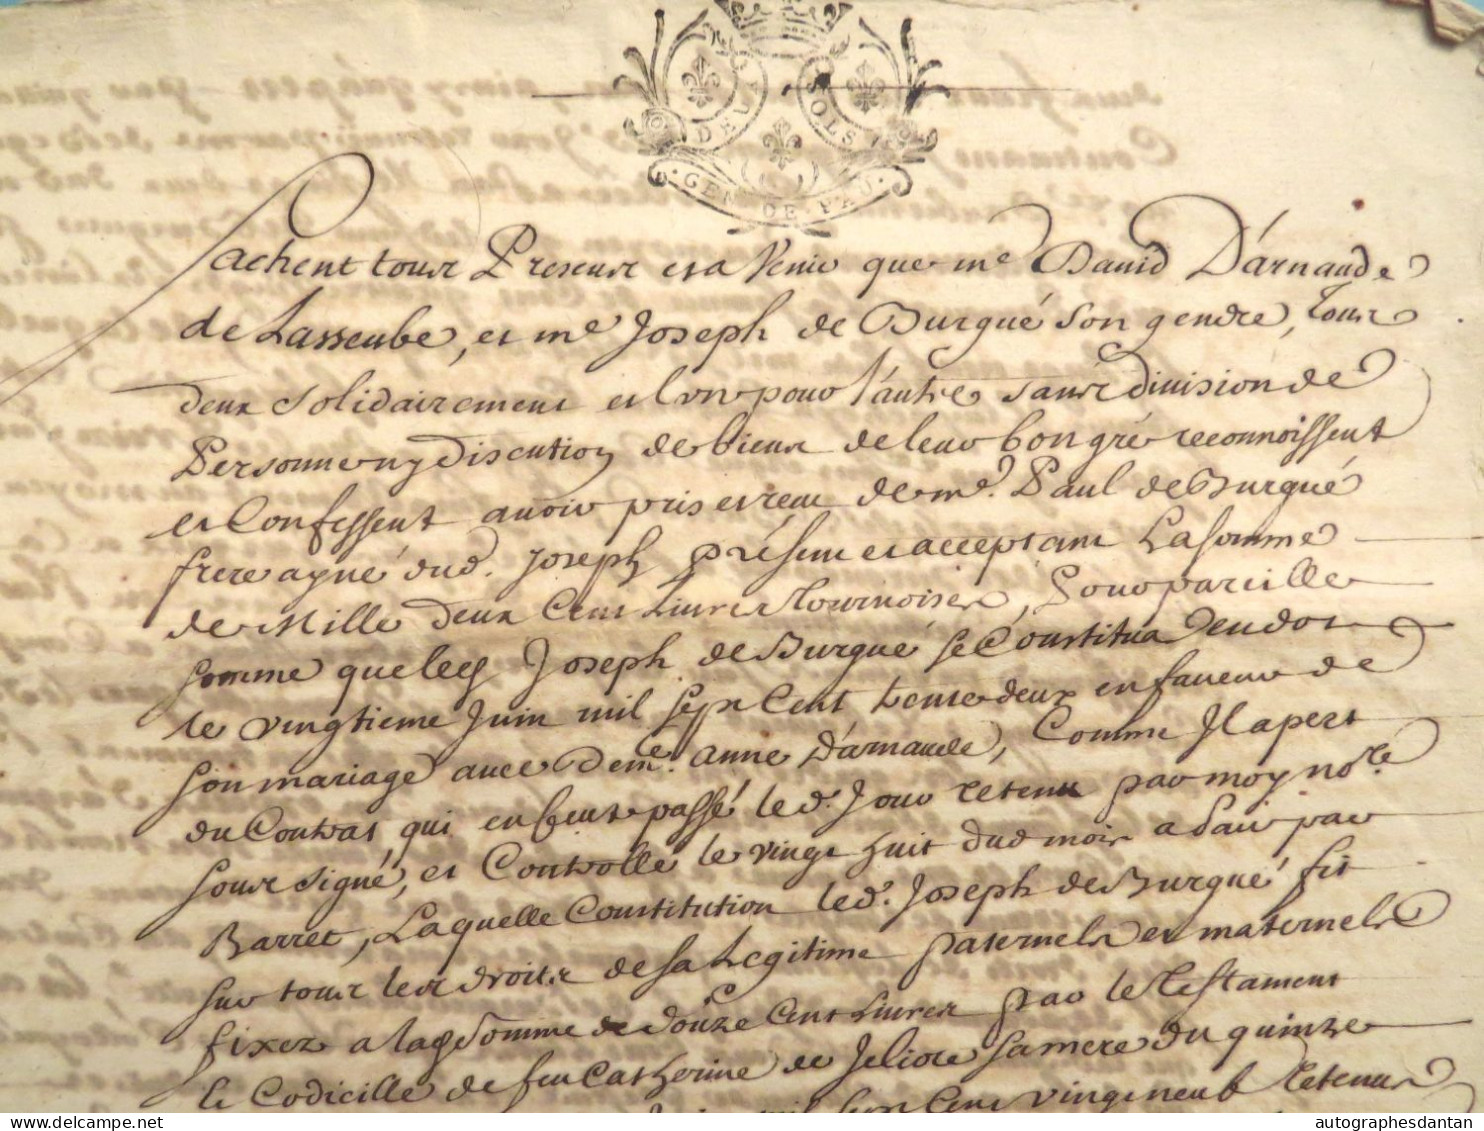 DEUX SOLS
GEN · DE · PAU
Sachent tous Presens et a Venir que me David D'arnaude
de Lasseube, et me Joseph de Burgué son gendre, tous
deux solidairement et l'un pour l'autre sans division de
Personne ny discution de biens de leur bon gré reconnoissent
et Confessent avoir pris et receu de me. Paul de Burgué
frere ayné dud. Joseph présent et acceptant La somme
de Mille deux Cens Livres Tournoises, Pour pareille
somme que led Joseph de Burgué se Constitua en dot
le vingtieme Juin mil sept Cent trente deux en faveur de
son mariage avec Demle. anne D'arnaude, Comme Il apert
du Contrat, qui en feut passé le d. Jour retenu par moy nore
sous signé, et Controllé le vingt huit dud mois a Pau par
Barret, Laquelle Constitution led. Joseph de Burgué fit
sur tous les droits de sa Legitime paternels et maternels
fixez a lad somme de Douze Cent Livres par le Testament
le Codicille de feu Catherine de Jeliote sa mere du quinze
mil sept Cens vingt neuf retenu
autographesdantan